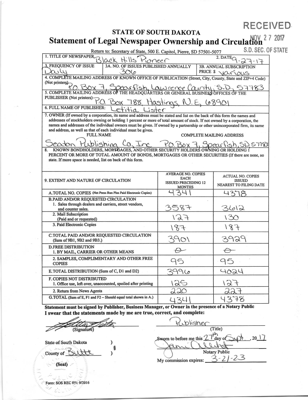 RECEIVED
NOV 27 2017
S.D. SEC. OF STATE
STATE OF SOUTH DAKOTA
Statement of Legal Newspaper Ownership and Circulation
Return to: Secretary of State, 500 E. Capitol, Pierre, SD 57501-5077
1. TITLE OF NEWSPAPER
Black Hills Pioneer
2. DATE
9-27-17
3. FREQUENCY OF ISSUE
Daily
3A. NO. OF ISSUES PUBLISHED ANNUALLY
306
3B. ANNUAL SUBSCRIPTION PRICE $ various
4. COMPLETE MAILING ADDRESS OF KNOWN OFFICE OF PUBLICATION (Street, City, County, State and ZIP+4 Code) (Not Printers)
PO Box 7, Spearfish, Lawrence County, S.D. 57783
5. COMPLETE MAILING ADDRESS OF THE HEADQUARTERS OF GENERAL BUSINESS OFFICES OF THE PUBLISHER (Not printer)
PO Box 788, Hastings, NE, 68901
6. FULL NAME OF PUBLISHER:
Letitia Lister
7. OWNER (If owned by a corporation, its name and address must be stated and list on the back of this form the names and addresses of stockholders owning or holding 1 percent or more of total amount of stock. If not owned by a corporation, the names and addresses of the individual owners must be given. If owned by a partnership or other unincorporated firm, its name and address, as well as that of each individual must be given.
FULL NAME
COMPLETE MAILING ADDRESS
Seaton Publishing Co. Inc
PO Box 7, Spearfish, SD 57783
8. KNOWN BONDHOLDERS, MORTGAGES, AND OTHER SECURITY HOLDERS OWNING OR HOLDING 1 PERCENT OR MORE TOTAL AMOUNT OF BONDS, MORTGAGES OR OTHER SECURITIES (If there are none, so state. If more space is needed, list on back of this form)
9. EXTENT AND NATURE OF CIRCULATION
AVERAGE NO. COPIES EACH ISSUED PRECEDING 12 MONTHS
ACTUAL NO. COPIES ISSUED NEAREST TO FILING DATE
A. TOTAL NO. COPIES (Net Press Run Plus Paid Electronic Copies)
4341
4378
B. PAID AND/OR REQUESTED CIRCULATION
1. Sales through dealers and carriers, street vendors, and counter sales.
3587
3612
2. Mail Subscription (Paid and or requested)
127
130
3. Paid Electronic Copies
187
187
C. TOTAL PAID AND/OR REQUESTED CIRCULATION (Sum of 9B1, 9B2 and 9B3.)
3901
3929
D. FREE DISTRIBUTION
1. BY MAIL, CARRIER OR OTHER MEANS
2. SAMPLES, COMPLIMENTARY AND OTHER FREE COPIES
95
95
E. TOTAL DISTRIBUTION (Sum of C, D1 and D2)
3996
4024
F. COPIES NOT DISTRIBUTED
1. Office use, left over, unaccounted, spoiled after printing
125
127
2. Return from News Agents
220
227
G. TOTAL (Sum of E, F1 and F2 - Should equal total shown in A.)
4341
4378
Statement must be signed by Publisher, Business Manager, or Owner in the presence of a Notary Public
I swear that the statements made by me are true, correct, and complete:
Publisher
(Signature)
(Title)
State of South Dakota )
County of Butte )
Sworn to before me this 27th day of Sept, 2017
Notary Public
(Seal)
My commission expires: 3-21-23
Form: SOS REC 051 9/2014